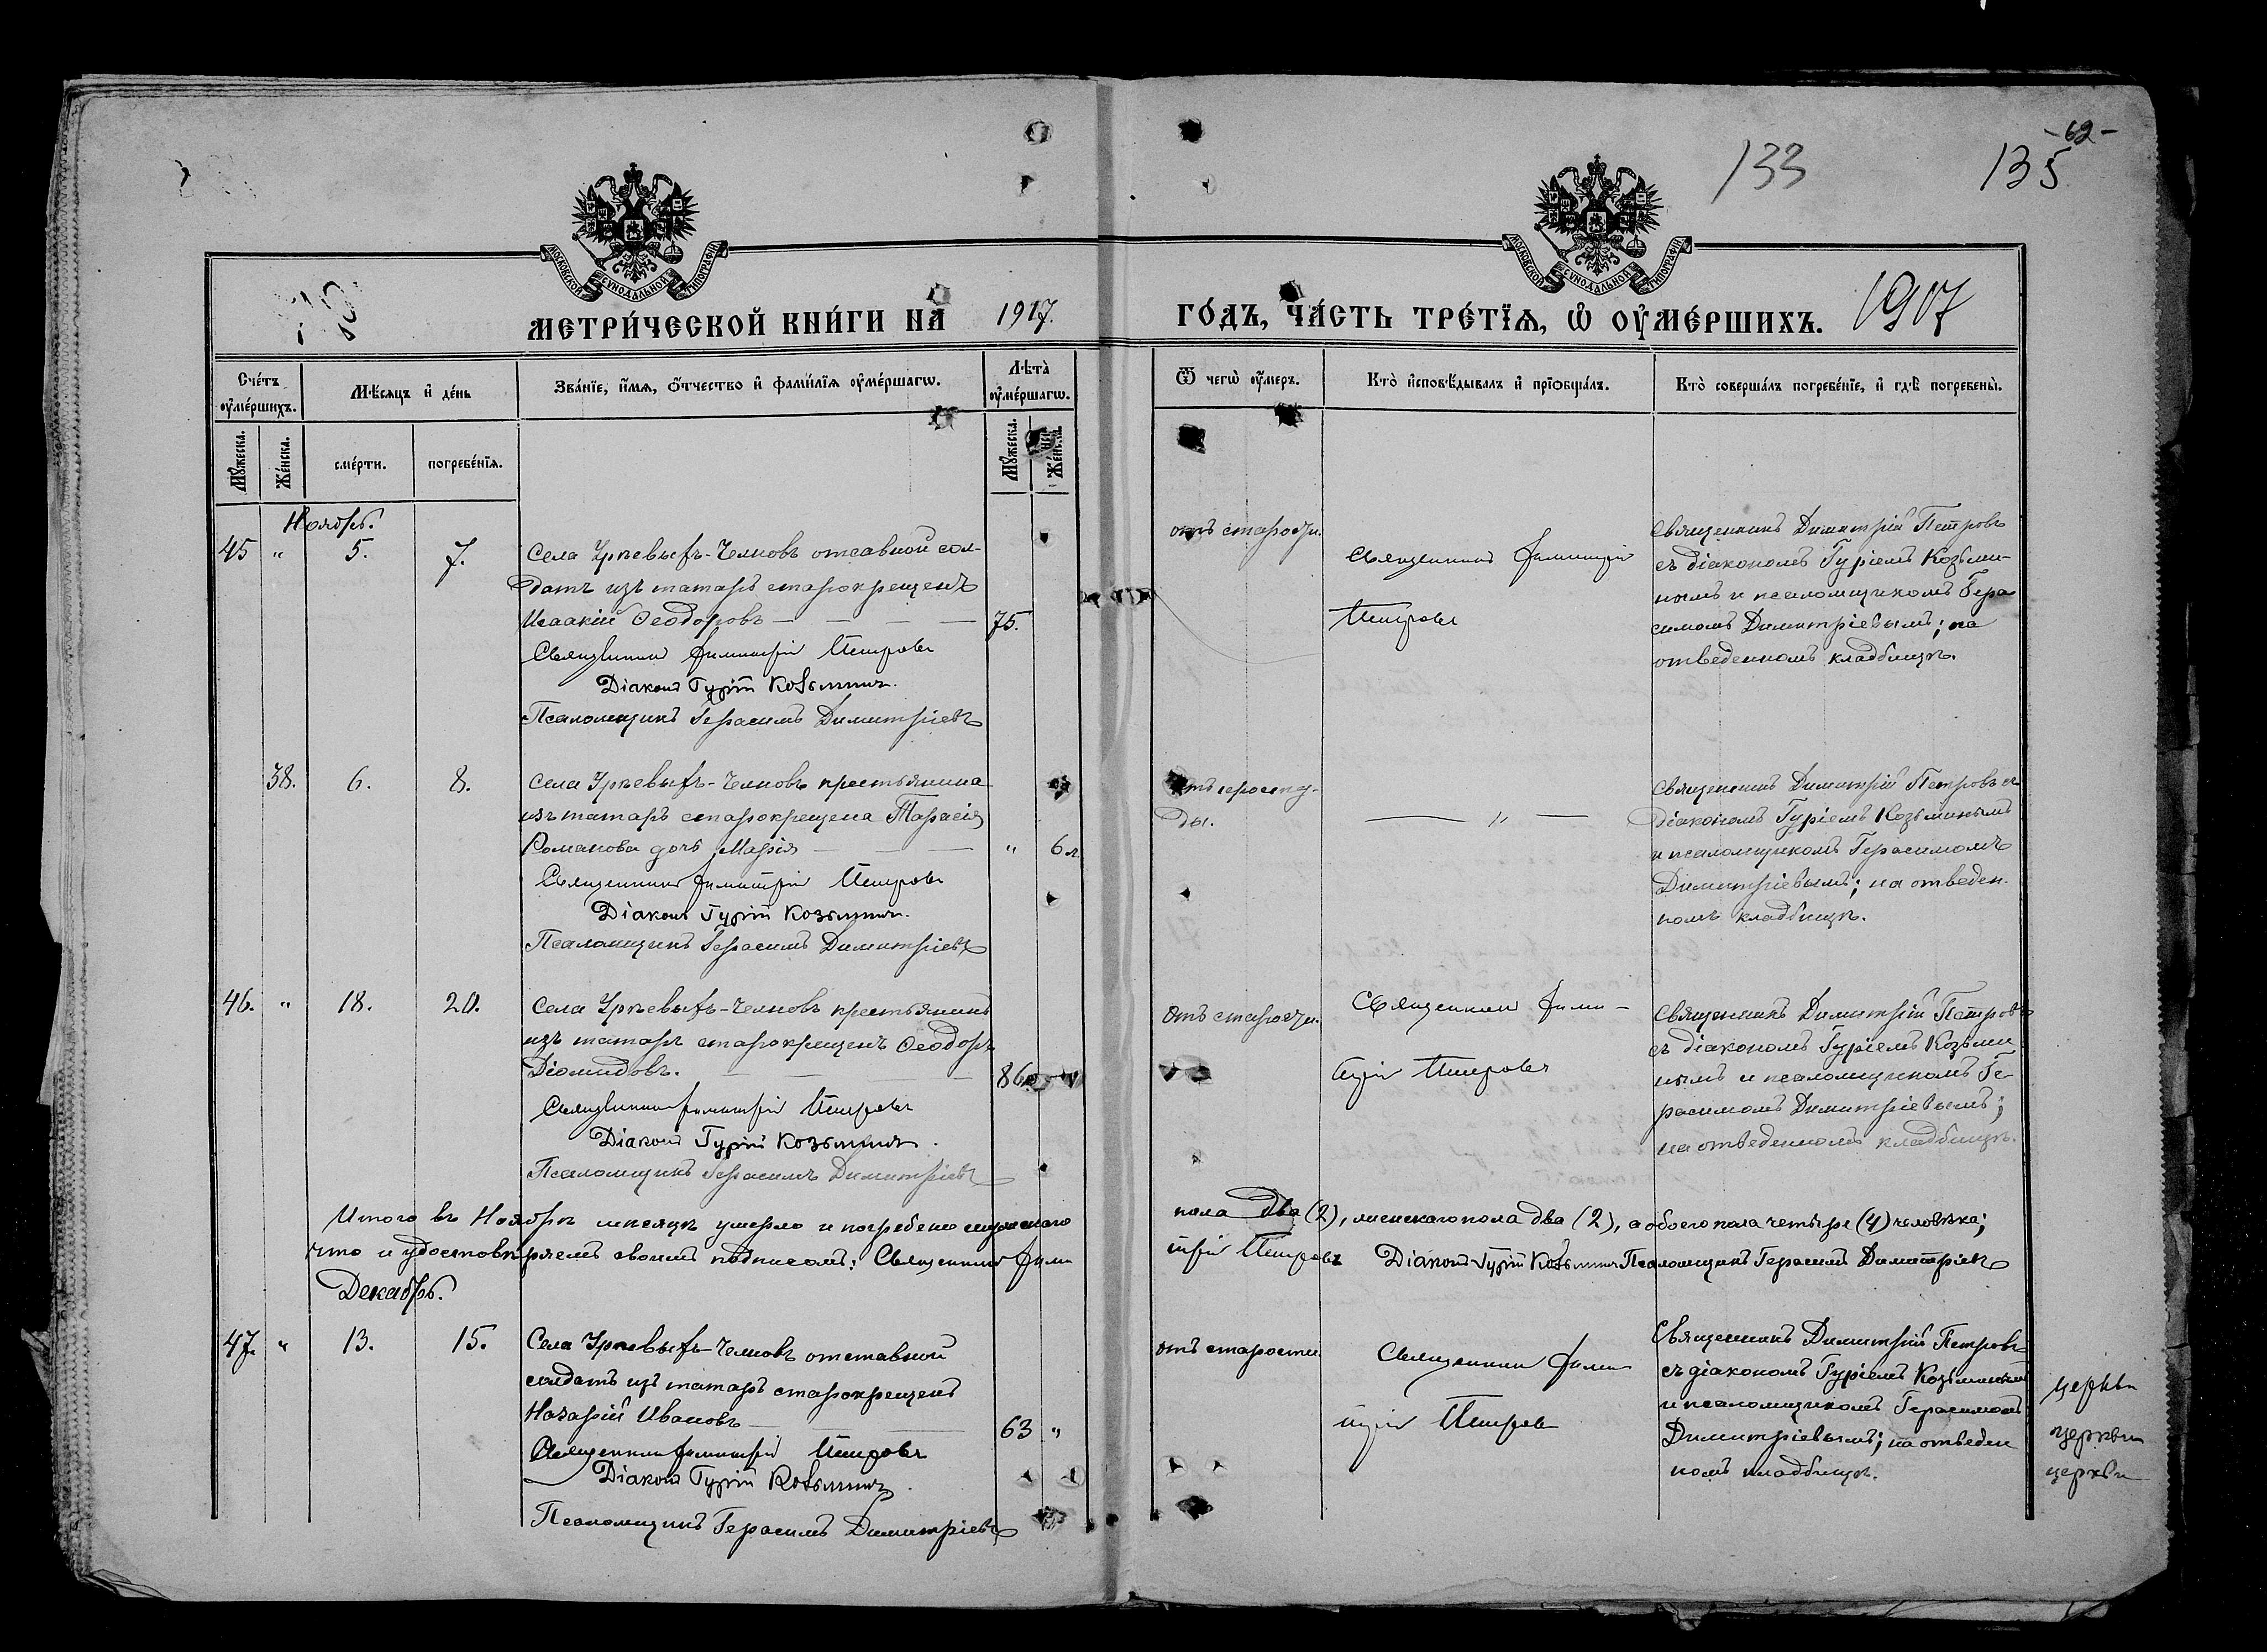 -62-
133
135
МОСКОВСКОЙ СѴНОДАЛЬНОЙ ТИПОГРАФІИ
МОСКОВСКОЙ СѴНОДАЛЬНОЙ ТИПОГРАФІИ
МЕТРИ́ЧЕСКОЙ КНИ́ГИ НА 1917.
ГО́ДЪ, ЧА́СТЬ ТРЕ́ТЇѦ, Ѡ҆ ОУ҆МЕ́РШИХЪ. 1917
Сче́тъ оу҆ме́ршихъ.
Мѣ́сѧцъ и҆ де́нь
Зва́нїе, и҆́мѧ, ѻ҆́тчество и҆ фами́лїѧ оу҆ме́ршагѡ.
Лѣ́та̀ оу҆ме́ршагѡ.
Ѿ чегѡ̀ оу҆́меръ.
Кто̀ и҆сповѣ́дывалъ и҆ прїѡбща́лъ.
Кто̀ соверша́лъ погребе́нїе, и҆ гдѣ̀ погребены̀.
Мꙋ́жеска.
Же́нска.
сме́рти.
погребе́нїѧ.
Мꙋ́жеска.
Же́нска.
Ноябрь.
45 " 5. 7.
Села Урѣевыхъ-Челновъ отсавной сол-
датъ изъ татаръ старокрещенъ
Исаакій Ѳеодоровъ — — — — 75.
Священникъ Димитрій Петровъ
Діаконъ Гурій Козьминъ.
Псаломщикъ Герасимъ Димитріевъ
отъ старости.
Священникъ Димитрій
Петровъ
Священникъ Димитрій Петровъ
съ діакономъ Гуріемъ Козьми-
нымъ и псаломщикомъ Гера
симомъ Димитріевымъ; на
отведенномъ кладбищѣ.
38. 6. 8.
Села Урѣевыхъ-Челновъ крестьянина
изъ татаръ старокрещена Тарасія
Романова дочь Марія — — " 6 л.
Священникъ Димитрій Петровъ
Діаконъ Гурій Козьминъ.
Псаломщикъ Герасимъ Димитріевъ
отъ
ды.
— " —
Священникъ Димитрій Петровъ съ
діакономъ Гуріемъ Козьминымъ
и псаломщикомъ Герасимомъ
Димитріевымъ; на отведен-
номъ кладбищѣ.
46. " 18. 20.
Села Урѣевыхъ-Челновъ крестьянинъ
изъ татаръ старокрещенъ Ѳеодоръ
Діомидовъ. — — — 86
Священникъ Димитрій Петровъ
Діаконъ Гурій Козьминъ.
Псаломщикъ Герасимъ Димитріевъ
Отъ старости.
Священникъ Дими-
трій Петровъ
Священникъ Димитрій Петровъ
съ діакономъ Гуріемъ Козьми
нымъ и псаломщикомъ Ге-
расимомъ Димитріевымъ;
на отведенномъ кладбищѣ.
Итого въ Ноябрѣ мѣсяцѣ умерло и погребено мужескаго пола два (2), женскаго пола два (2), а обоего пола четыре (4) человѣка;
что и удостовѣряемъ своимъ подписомъ: Священникъ Димитрій Петровъ Діаконъ Гурій Козьминъ Псаломщикъ Герасимъ Димитріевъ
Декабрь.
47. " 13. 15.
Села Урѣевыхъ-Челновъ отставной
солдатъ изъ татаръ старокрещенъ
Назарій Ивановъ — — 63 "
Священникъ Димитрій Петровъ
Діаконъ Гурій Козьминъ.
Псаломщикъ Герасимъ Димитріевъ
отъ старости.
Священникъ Дими
трій Петровъ
Священникъ Димитрій Петровъ
съ діакономъ Гуріемъ Козьминымъ
и псаломщикомъ Герасимомъ
Димитріевымъ; на отведен
номъ кладбищѣ.
церкви
церкви
церкви